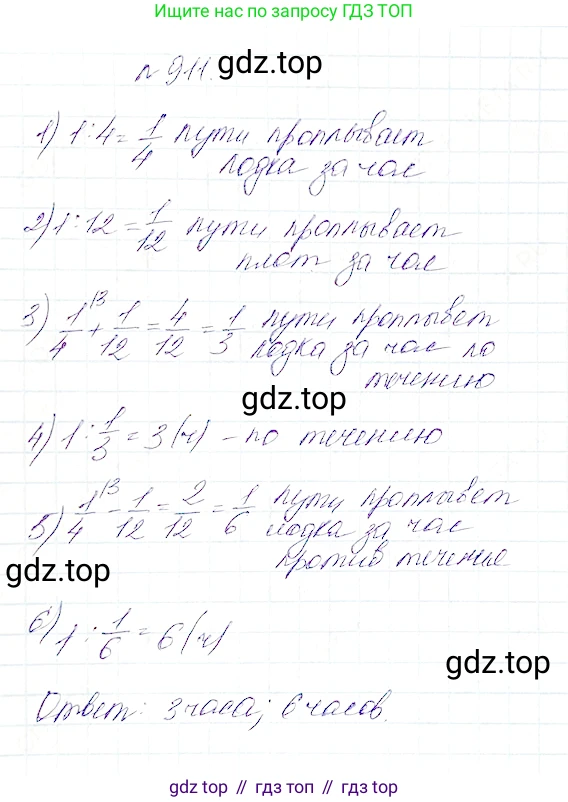 Ищите нас в поиске по запросу ГДЗ ТОП
№ 911. gdz.top
1) 1:4 = 1/4 пути проплывает
лодка за час
2) 1:12 = 1/12 пути проплывает
плот за час
3) 1/4 \3 + 1/12 = 4/12 = 1/3 пути проплывет
лодка за час по
течению
gdz.top
4) 1 : 1/3 = 3 (ч) – по течению
5) 1/4 \3 – 1/12 = 2/12 = 1/6 пути проплывет
лодка за час
против течение
gdz.top
6) 1 : 1/6 = 6 (ч)
gdz.top
Ответ: 3 часа; 6 часов.
gdz.top // гдз топ // гдз.top